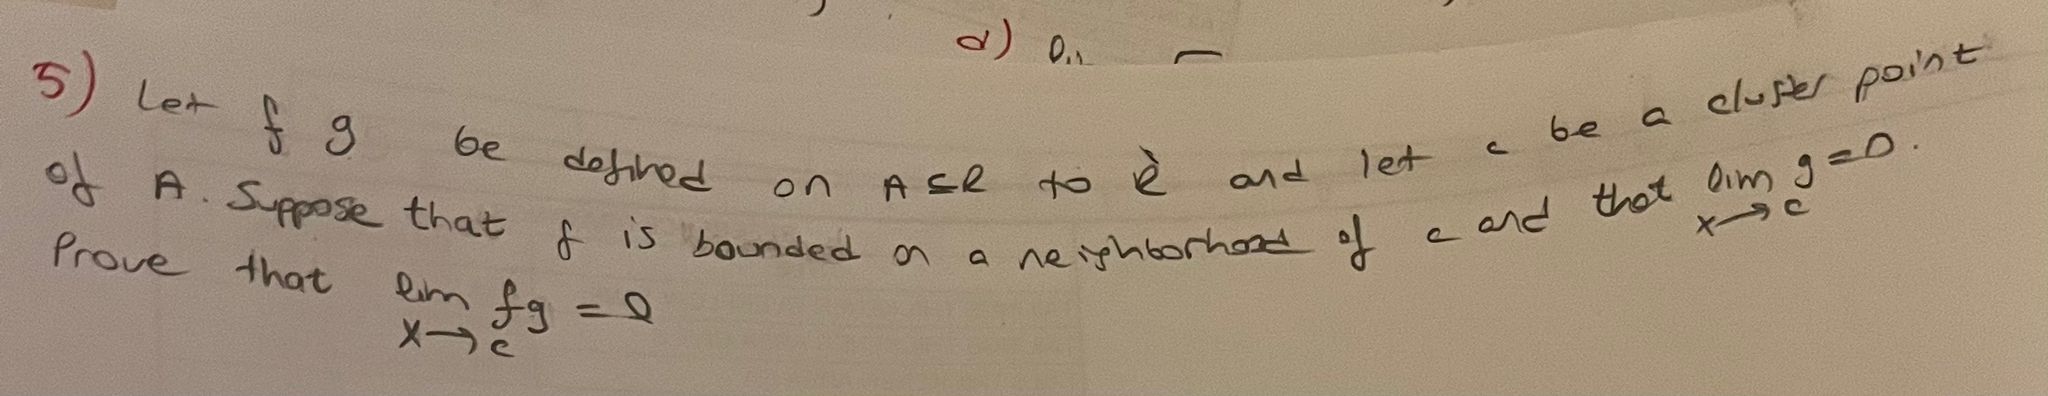 d)
5) Let f g be defined on A ⊆ R to R and let c be a cluster point
of A. Suppose that f is bounded on a neighborhood of c and that lim g = 0.
x→c
Prove that lim fg = 0
x→c